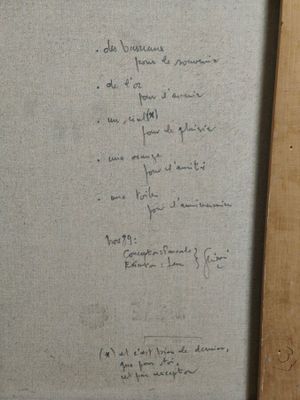 • des bureaux
pour le souvenir
• de l'or
pour l'avenir
• un (*)
pour le plaisir
• une orange
pour l'amitié
• une toile
pour l'anniversaire
Nov 99:
Conception: Pascale
Exécution:
(*) et c'est bien le dernier,
que pour toi,
et par exception